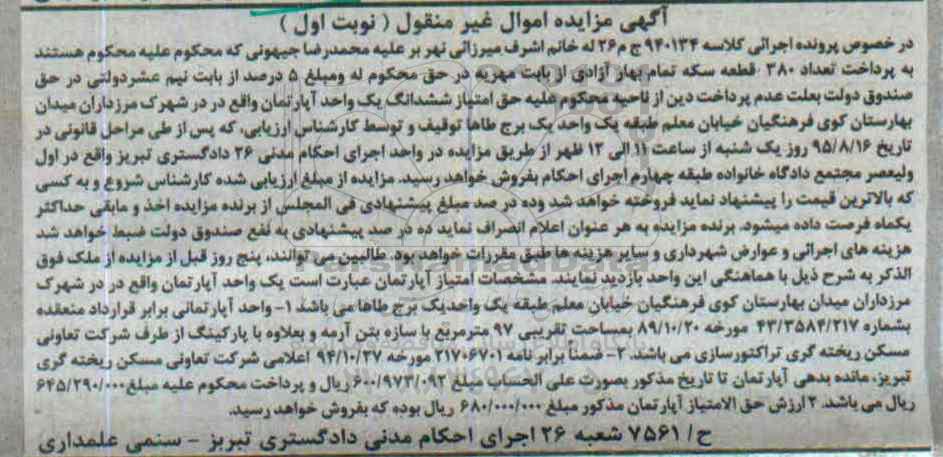 آگهی مزایده اموال غیر منقول ( نوبت اول )
در خصوص پرونده اجرائی کلاسه ۹۴۰۱۳۴ ج م۲۶ له خانم اشرف میرزائی نهر بر علیه محمدرضا جیهونی که محکوم علیه محکوم هستند
به پرداخت تعداد ۳۸۰ قطعه سکه تمام بهار آزادی از بابت مهریه در حق محکوم له ومبلغ ۵ درصد از بابت نیم عشردولتی در حق
صندوق دولت بعلت عدم پرداخت دین از ناحیه محکوم علیه حق امتیاز ششدانگ یک واحد آپارتمان واقع در در شهرک مرزداران میدان
بهارستان کوی فرهنگیان خیابان معلم طبقه یک واحد یک برج طاها توقیف و توسط کارشناس ارزیابی، که پس از طی مراحل قانونی در
تاریخ ۹۵/۸/۱۶ روز یک شنبه از ساعت ۱۱ الی ۱۲ ظهر از طریق مزایده در واحد اجرای احکام مدنی ۲۶ دادگستری تبریز واقع در اول
ولیعصر مجتمع دادگاه خانواده طبقه چهارم اجرای احکام بفروش خواهد رسید. مزایده از مبلغ ارزیابی شده کارشناس شروع و به کسی
که بالاترین قیمت را پیشنهاد نماید فروخته خواهد شد وده در صد مبلغ پیشنهادی فی المجلس از برنده مزایده اخذ و مابقی حداکثر
یکماه فرصت داده میشود. برنده مزایده به هر عنوان اعلام انصراف نماید ده در صد پیشنهادی به نفع صندوق دولت ضبط خواهد شد
هزینه های اجرائی و عوارض شهرداری و سایر هزینه ها طبق مقررات خواهد بود. طالبین می توانند، پنج روز قبل از مزایده از ملک فوق
الذکر به شرح ذیل با هماهنگی این واحد بازدید نمایند. مشخصات امتیاز آپارتمان عبارت است یک واحد آپارتمان واقع در در شهرک
مرزداران میدان بهارستان کوی فرهنگیان خیابان معلم طبقه یک واحدیک برج طاها می باشد ۱- واحد آپارتمانی برابر قرارداد منعقده
بشماره ۴۳/۳۵۸۴/۲۱۷ مورخه ۸۹/۱۰/۲۰ بمساحت تقریبی ۹۷ مترمربع با سازه بتن آرمه و بعلاوه با پارکینگ از طرف شرکت تعاونی
مسکن ریخته گری تراکتورسازی می باشد. ۲- ضمنا برابر نامه ۲۱۷۰۶۷۰۱ مورخه ۹۴/۱۰/۲۷ اعلامی شرکت تعاونی مسکن ریخته گری
تبریز، مانده بدهی آپارتمان تا تاریخ مذکور بصورت علی الحساب مبلغ ۶۰۰/۹۷۳/۰۹۲ ریال و پرداخت محکوم علیه مبلغ ۶۴۵/۲۹۰/۰۰۰
ریال می باشد. ۳ ارزش حق الامتیاز آپارتمان مذکور مبلغ ۶۸۰/۰۰۰/۰۰۰ ریال بوده که بفروش خواهد رسید.
ح/ ۷۵۶۱ شعبه ۲۶ اجرای احکام مدنی دادگستری تبریز - سنمی علمداری